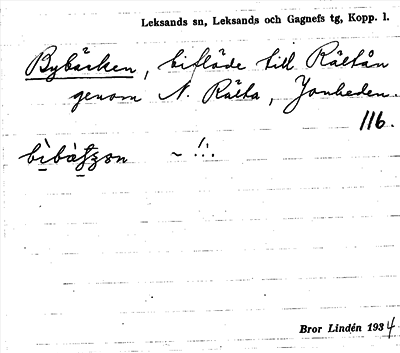 Leksands sn, Leksands och Gagnefs tg, Kopp. l.
Bybäcken, biflöde till Rältån
genom N. Rälta, Yonheden.
116.
Bror Lindén 1934